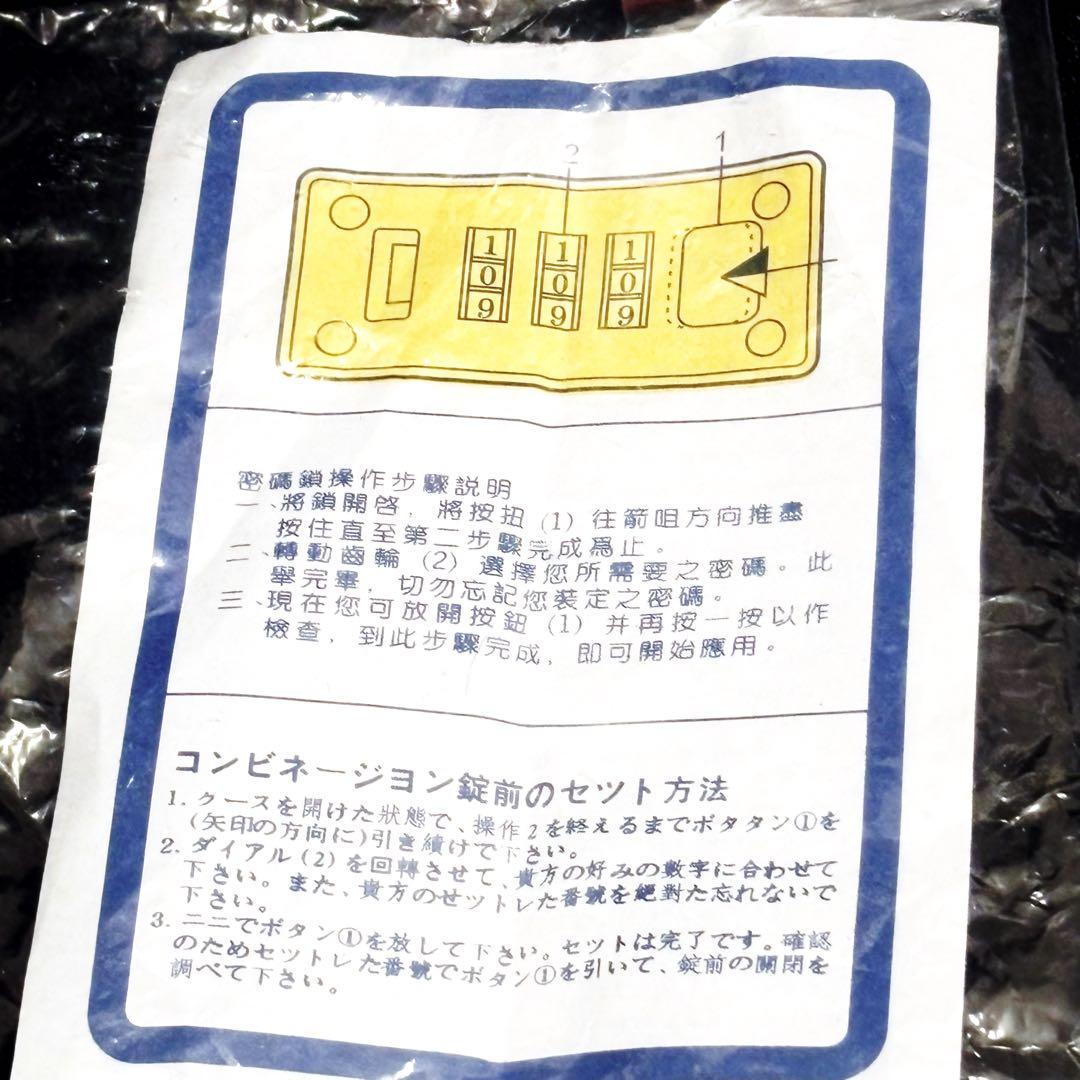 2
1
1 1 1
0 0 0
9 9 9
密碼鎖操作步驟説明
一、將鎖開啓，將按扭 (1) 往箭咀方向推盡
按住直至第二步驟完成爲止。
二、轉動齒輪 (2) 選擇您所需要之密碼。此
舉完畢，切勿忘記您裝定之密碼。
三、現在您可放開按鈕 (1) 并再按一按以作
檢查，到此步驟完成，即可開始應用。
コンビネージヨン錠前のセツト方法
1. クースを開けた狀態で、操作2を終えるまでボタタン①を
(矢印の方向に)引き續けで下さい。
2. ダイアル(2)を回轉させて、貴方の好みの數字に合わせて
下さい。また、貴方のせツトレた番號を絕對た忘れないで
下さい。
3. ニニでボタン①を放して下さい。セツトは完了です。確認
のためセツトレた番號でボタン①を引いて、錠前の開閉を
調べて下さい。